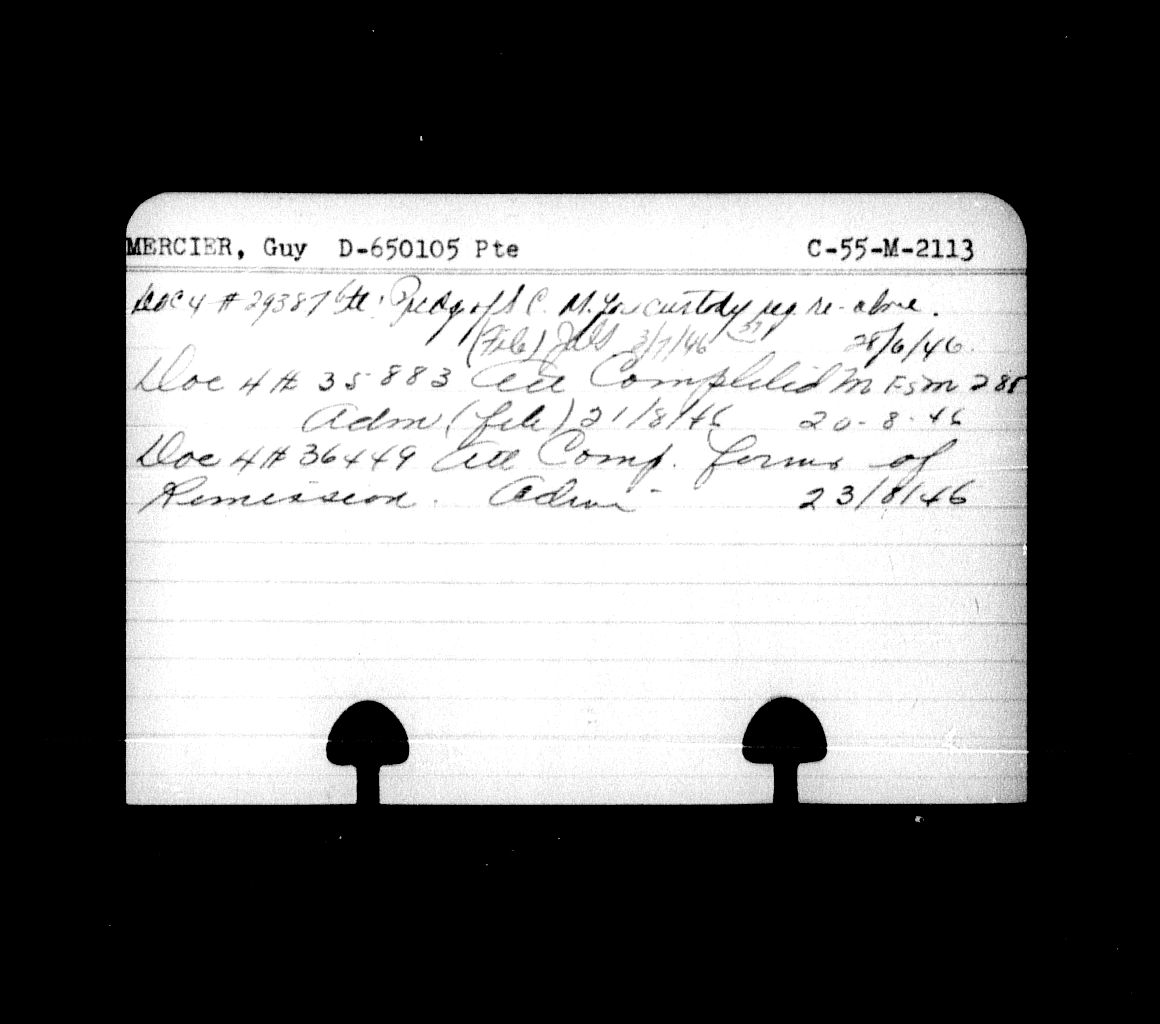 MERCIER, Guy D-650105 Pte C-55-M-2113
Doc 4 # 29387 Att: Prcdg of S C. M. for custody reg re- above.
(File) 3/7/46 37 28/6/46.
Doc 4 # 35883 Att Completed M Fsm 285
Adm (file) 21/8/46 20-8-46
Doc 4 # 36449 Att Comp. forms of
Remission. Adm - 23/8/46